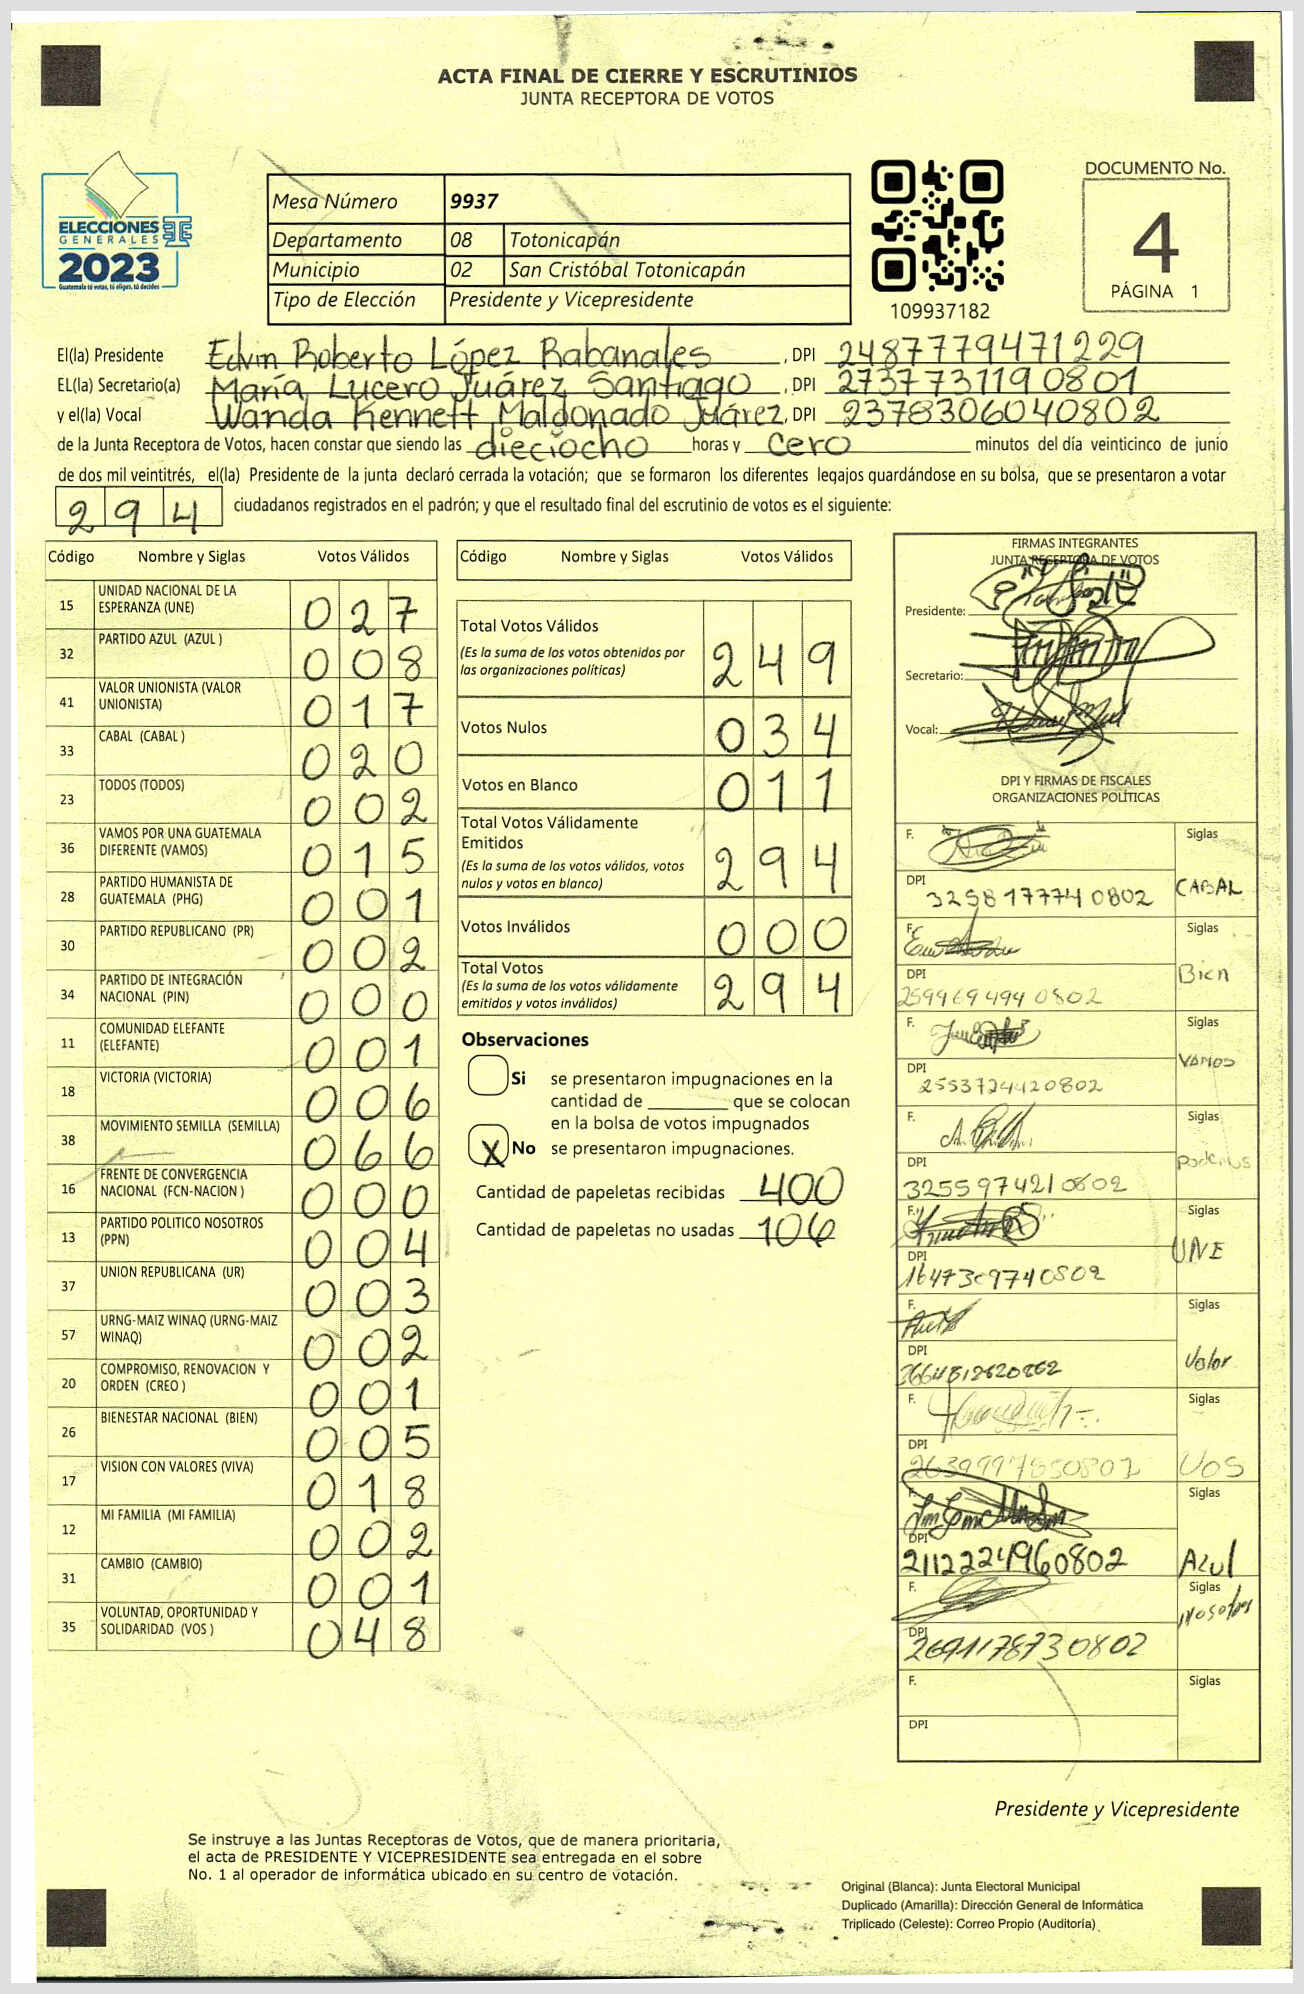 ACTA FINAL DE CIERRE Y ESCRUTINIOS
JUNTA RECEPTORA DE VOTOS
ELECCIONES
GENERALES
2023
Guatemala tú votas, tú eliges, tú decides
Mesa Número 9937
Departamento 08 Totonicapán
Municipio 02 San Cristóbal Totonicapán
Tipo de Elección Presidente y Vicepresidente
109937182
DOCUMENTO No.
4
PÁGINA 1
El(la) Presidente Edvin Roberto López Rabanales, DPI 2487779471229
EL(la) Secretario(a) María Lucero Juárez Santiago, DPI 2737731190801
y el(la) Vocal Wanda Kennett Maldonado Juárez, DPI 2378306040802
de la Junta Receptora de Votos, hacen constar que siendo las dieciocho horas y cero minutos del día veinticinco de junio
de dos mil veintitrés, el(la) Presidente de la junta declaró cerrada la votación; que se formaron los diferentes legajos guardándose en su bolsa, que se presentaron a votar
294 ciudadanos registrados en el padrón; y que el resultado final del escrutinio de votos es el siguiente:
Código Nombre y Siglas Votos Válidos
15 UNIDAD NACIONAL DE LA ESPERANZA (UNE) 027
32 PARTIDO AZUL (AZUL ) 008
41 VALOR UNIONISTA (VALOR UNIONISTA) 017
33 CABAL (CABAL ) 020
23 TODOS (TODOS) 002
36 VAMOS POR UNA GUATEMALA DIFERENTE (VAMOS) 015
28 PARTIDO HUMANISTA DE GUATEMALA (PHG) 001
30 PARTIDO REPUBLICANO (PR) 002
34 PARTIDO DE INTEGRACIÓN NACIONAL (PIN) 000
11 COMUNIDAD ELEFANTE (ELEFANTE) 001
18 VICTORIA (VICTORIA) 006
38 MOVIMIENTO SEMILLA (SEMILLA) 066
16 FRENTE DE CONVERGENCIA NACIONAL (FCN-NACION ) 000
13 PARTIDO POLITICO NOSOTROS (PPN) 004
37 UNION REPUBLICANA (UR) 003
57 URNG-MAIZ WINAQ (URNG-MAIZ WINAQ) 002
20 COMPROMISO, RENOVACION Y ORDEN (CREO ) 001
26 BIENESTAR NACIONAL (BIEN) 005
17 VISION CON VALORES (VIVA) 018
12 MI FAMILIA (MI FAMILIA) 002
31 CAMBIO (CAMBIO) 001
35 VOLUNTAD, OPORTUNIDAD Y SOLIDARIDAD (VOS ) 048
Código Nombre y Siglas Votos Válidos
Total Votos Válidos 249
(Es la suma de los votos obtenidos por
las organizaciones políticas)
Votos Nulos 034
Votos en Blanco 011
Total Votos Válidamente
Emitidos 294
(Es la suma de los votos válidos, votos
nulos y votos en blanco)
Votos Inválidos 000
Total Votos 294
(Es la suma de los votos válidamente
emitidos y votos inválidos)
Observaciones
Si se presentaron impugnaciones en la
cantidad de ________ que se colocan
en la bolsa de votos impugnados
X No se presentaron impugnaciones.
Cantidad de papeletas recibidas 400
Cantidad de papeletas no usadas 106
FIRMAS INTEGRANTES
JUNTA RECEPTORA DE VOTOS
Presidente:
Secretario:
Vocal:
DPI Y FIRMAS DE FISCALES
ORGANIZACIONES POLÍTICAS
F. Siglas
DPI 3258177740802 CABAL
F. Siglas
DPI 2599694940802 Bien
F. Siglas
DPI 2553724420802 VAMOS
F. Siglas
DPI 3255974210802 Podemos
F. Siglas
DPI 1647309740802 UNE
F. Siglas
DPI Valor
F. Siglas
DPI 2639997850802 VOS
F. Siglas
DPI 2112224960802 Azul
F. Siglas
DPI 2691178730802 Nosotros
F. Siglas
DPI
Presidente y Vicepresidente
Se instruye a las Juntas Receptoras de Votos, que de manera prioritaria,
el acta de PRESIDENTE Y VICEPRESIDENTE sea entregada en el sobre
No. 1 al operador de informática ubicado en su centro de votación.
Original (Blanca): Junta Electoral Municipal
Duplicado (Amarilla): Dirección General de Informática
Triplicado (Celeste): Correo Propio (Auditoría)